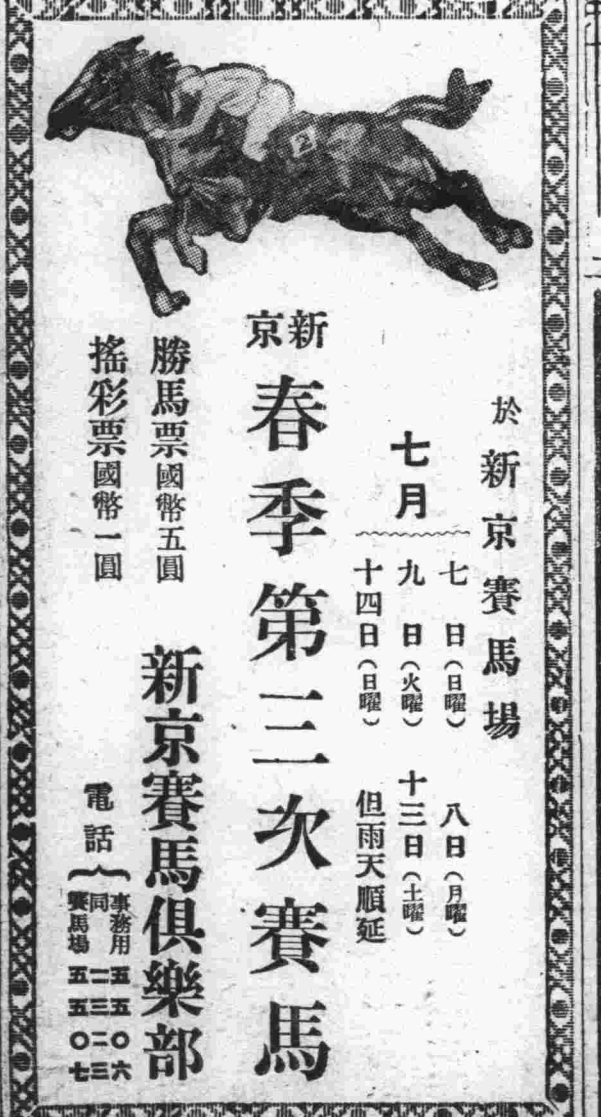 2
於新京賽馬場
七月
七日(日曜) 八日(月曜)
九日(火曜) 十三日(土曜)
十四日(日曜) 但雨天順延
新京
春季第三次賽馬
勝馬票國幣五圓
搖彩票國幣一圓
新京賽馬俱樂部
電話
事務用 五五〇六
同 二三二三
賽馬場 五五〇七